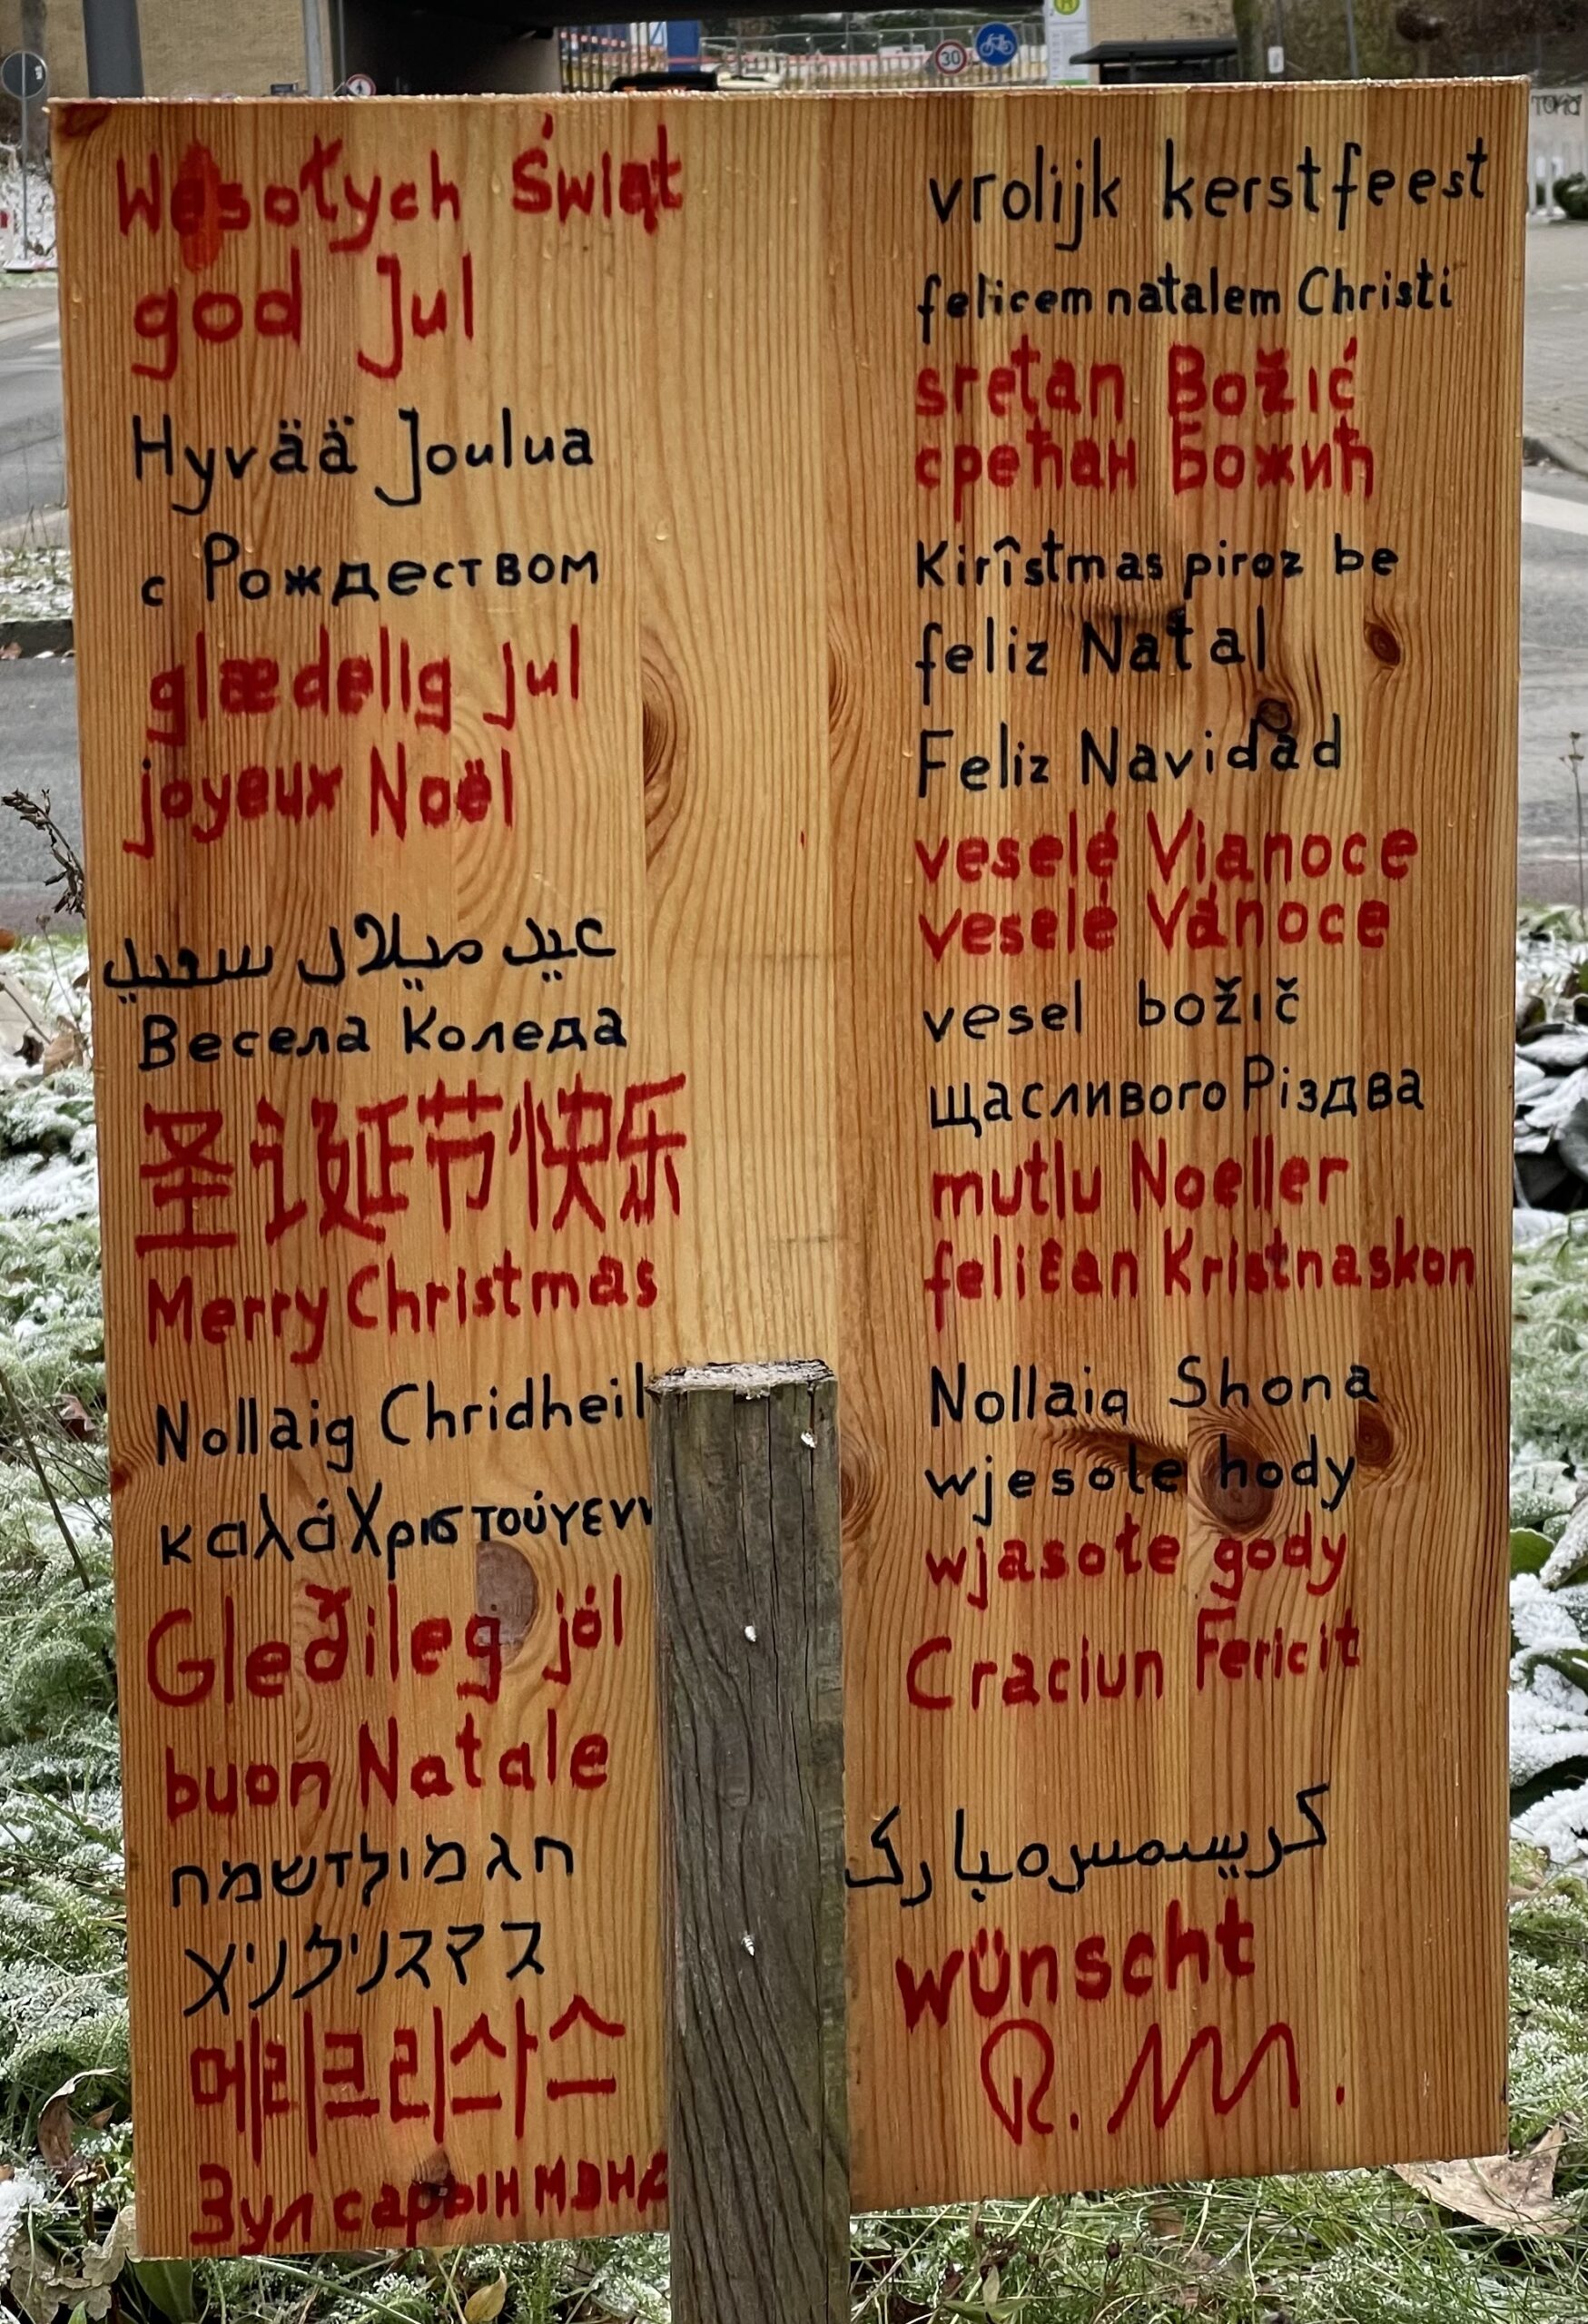 Wesołych Świąt
god Jul
Hyvää Joulua
с Рождеством
glædelig jul
joyeux Noël
عيد ميلاد سعيد
Весела Коледа
圣诞节快乐
Merry Christmas
Nollaig Chridheil
καλά Χριστούγενν
Gleðileg jól
buon Natale
חג מולד שמח
메리크리스마스
Зул сарын мэнд
vrolijk kerstfeest
felicem natalem Christi
sretan Božić
срећан Божић
Kirîstmas piroz be
feliz Natal
Feliz Navidad
veselé Vianoce
veselé Vánoce
vesel božič
щасливого Різдва
mutlu Noeller
feliĉan Kristnaskon
Nollaig Shona
wjesołe hody
wjasołe gody
Craciun Fericit
کریسمس مبارک
wünscht
R. M.
30
H